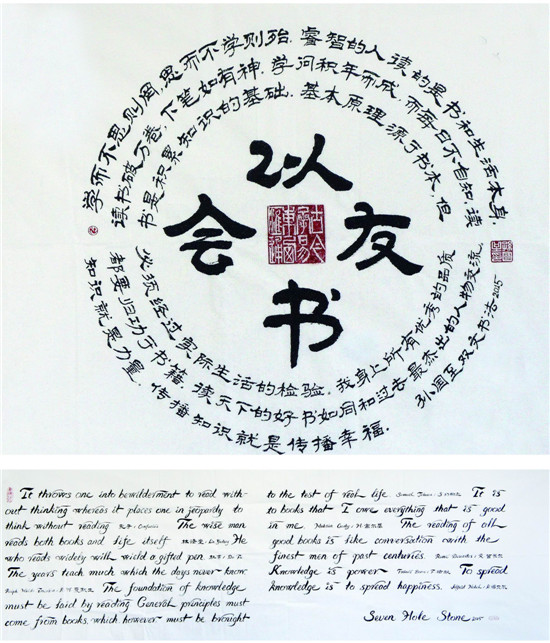 学而不思则罔，思而不学则殆。睿智的人读的是书和生活本身。
读书破万卷，下笔如有神。学问积年而成，而每日不自知。读
书是积累知识的基础。基本原理源于书本，但
必须经过实际生活的检验。我身上所有优秀的品质
都要归功于书籍。读天下的好书如同和过去最杰出的人物交流。
知识就是力量。传播知识就是传播幸福。
孙国玺双文书法2015
以
会 友
书
It throws one into bewilderment to read with-
out thinking whereas it places one in jeopardy to
think without reading 孔子·Confucius The wise man
reads both books and life itself 林语堂·Lin Yutang He
who reads widely will wield a gifted pen 杜甫·Du Fu
The years teach much which the days never know
Ralph Waldo Emerson The foundation of knowledge
must be laid by reading General principles must
come from books, which however must be brought
to the test of real life Samuel Johnson It is
to books that I owe everything that is good
in me Gorky·高尔基 The reading of all
good books is like conversation with the
finest men of past centuries Descartes
Knowledge is power Francis Bacon To spread
knowledge is to spread happiness Alfred Nobel
Seven Hole Stone 2015